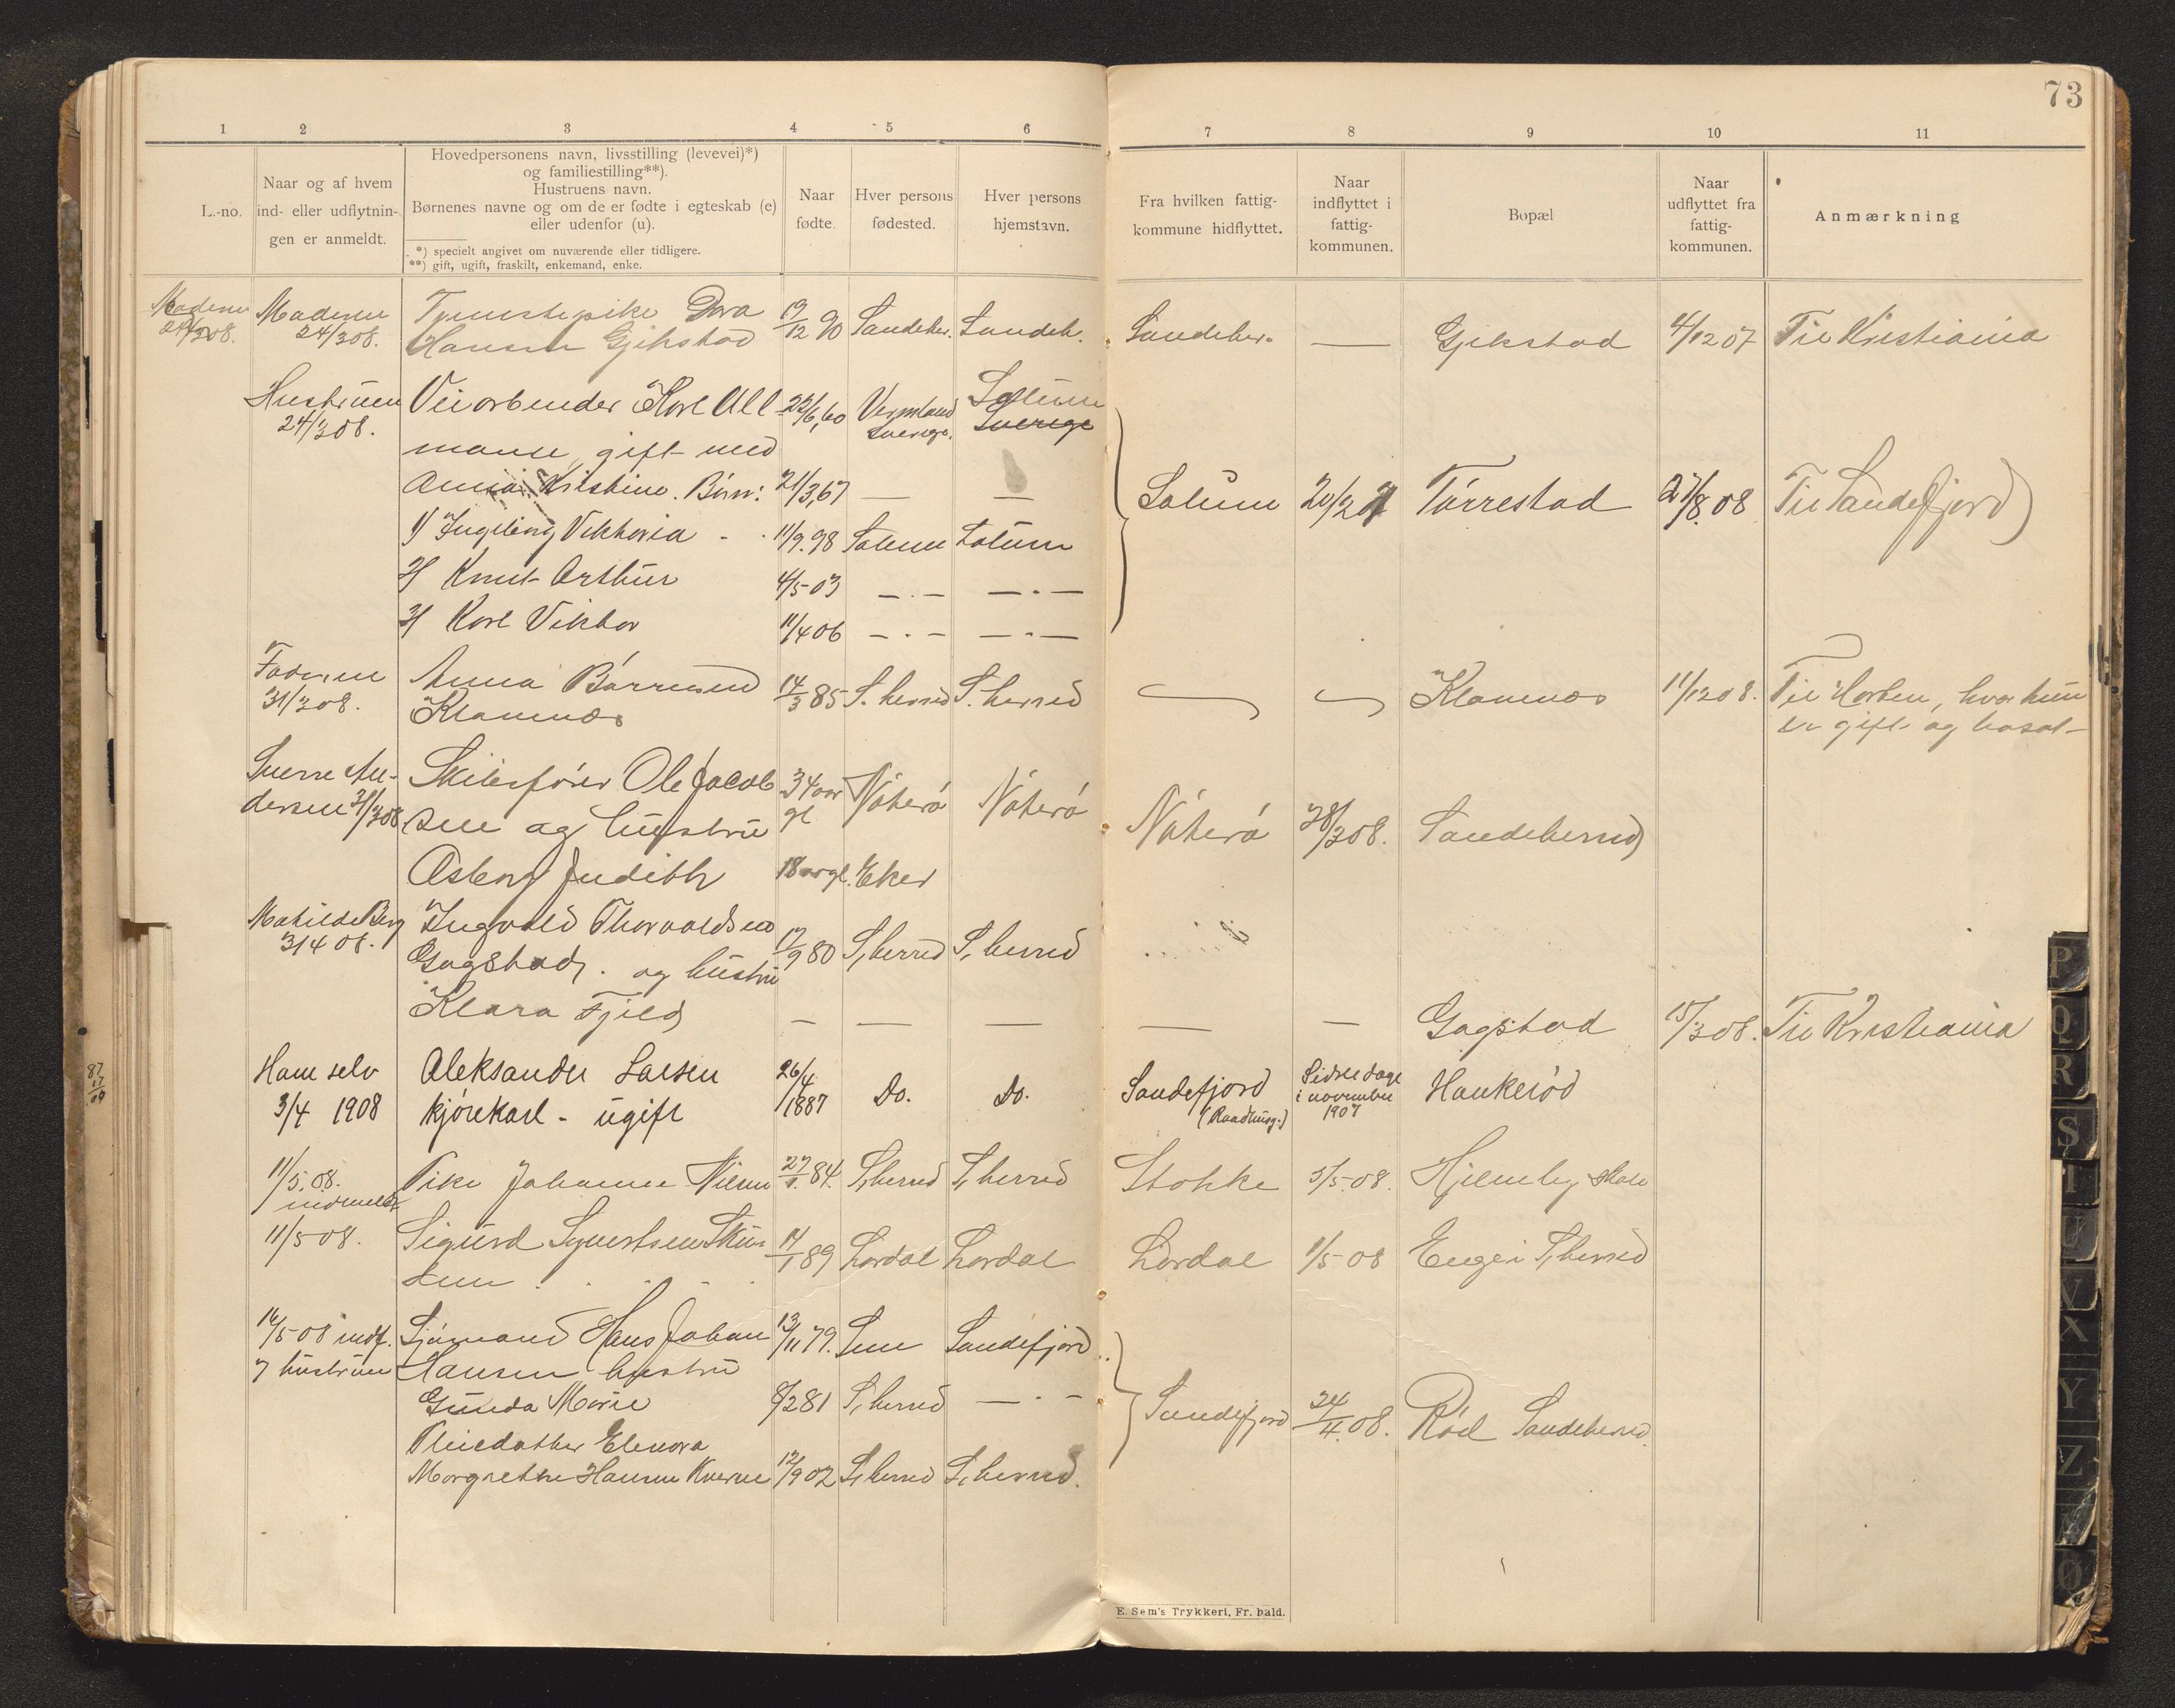 73
1 2 3 4 5 6 7 8 9 10 11
L.-no.
Naar og af hvem
ind- eller udflytnin-
gen er anmeldt.
Hovedpersonens navn, livsstilling (levevei)*)
og familiestilling**).
Hustruens navn.
Børnenes navne og om de er fødte i egteskab (e)
eller udenfor (u).
*) specielt angivet om nuværende eller tidligere.
**) gift, ugift, fraskilt, enkemand, enke.
Naar
fødte.
Hver persons
fødested.
Hver persons
hjemstavn.
Fra hvilken fattig-
kommune hidflyttet.
Naar
indflyttet i
fattig-
kommunen.
Bopæl
Naar
udflyttet fra
fattig-
kommunen.
Anmærkning
Moderen Moderen Tjenestepike Dora 19/12 90 Sandeher. Sandeh. Sandeher. — Gjekstad 4/12 07 Til Kristiania
24/3 08. 24/3 08. Hansen Gjekstad
Hustruen Veiarbeider Karl All 22/6,60 Vermland Solum
24/3 08. Sverige. Sverige
manne, gift med
Anna Kristine. Børn: 21/3,67 — — Solum Tørrestad 27/8.08 Til Sandefjord
1) Ingeborg Viktoria - . 11/9.98 Solum Solum
2) Knut Arthur 4/5-03 — . — — . —
3) Karl Viktor 11/4 06 — . — — . —
Faderen Anna Klavenæs 14/3 85 S. herred S. herred Klavenæs 11/12 08. Til Horten, hvor hun
31/3 08. er gift og bosat
Sverre An- Ole Jacob 34 aar Nøterø Nøterø Nøterø 28/3 08. Sandeherred
dersen 31/3 08 sen og hustru gl
Asborg Judith 18 aar gl. Eker
Mathilde Berg Ingvald Thorvaldsen 17/9 80 S, herred S, herred
3/4 08. Gogstad. og hustru
Klara Fjeld — — — — — Gogstad 15/3 08. Til Kristiania
Ham selv Aleksander Larsen 26/4 1887 Do. Do. Sandefjord Sidste dage Haukerød
3/4 1908 kjørekarl - ugift (Raadhusg.) i november
1907
11/5.08. Pike Johanne Nilsen 27/8.84. S, herred S, herred Stokke 5/5.08. Hjemby skole
indmeldt
11/5 08. Sigurd Syvertsen 14/1 89 Lardal Lardal Lardal 1/5-08 Enge i S, herred
14/5 08 indf. Sjømand Hans Johan 13/11 79. Sem Sandefjord
Hansen hustru
Gunda Marie 8/2 81 S, herred — . — Sandefjord 24/4.08. Rød Sandeherred.
Pleiedatter Elenora
Margrethe Hansen Kverne 12/9 02 S, herred S, herred.
E. Sem's Trykkeri, Fr. hald.
P
Q
R
S
T
U
V
X
Y
Z
Æ
Ø